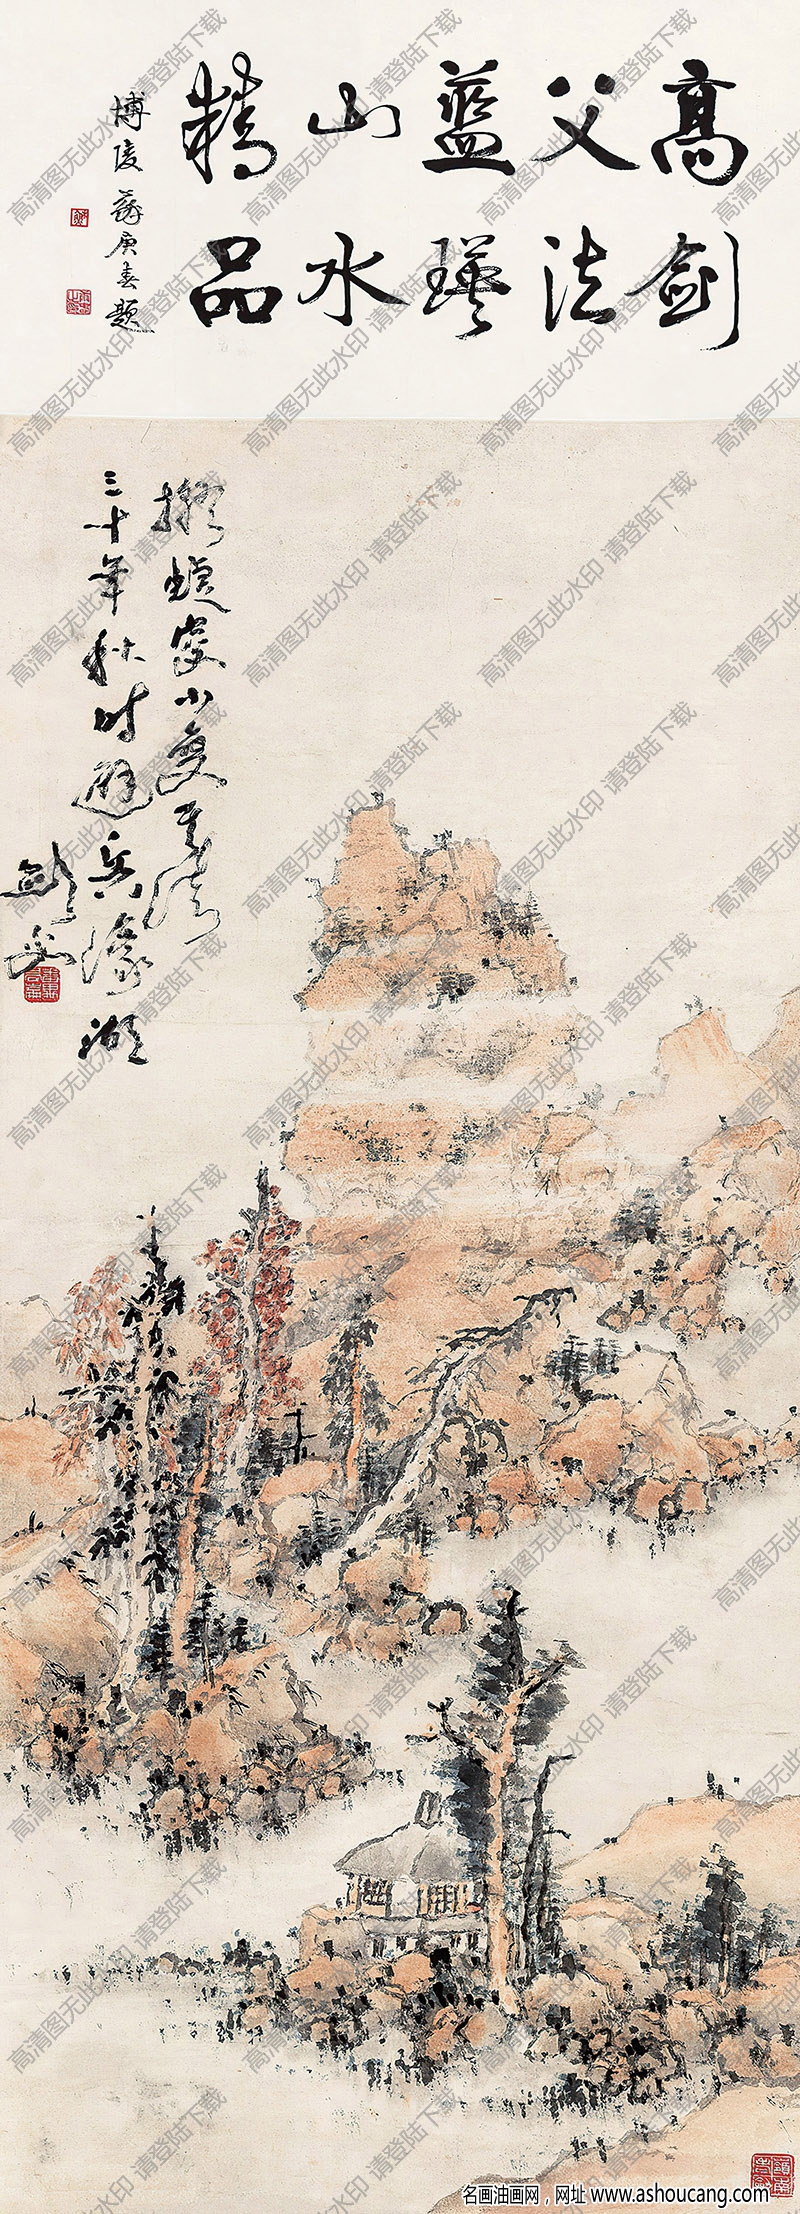 高剑
父法
蓝瑛
山水
精品
博陵薛庚春题
拟蝶叟小变其法
三十年秋时避兵濠湖
剑父
高清图无此水印 请登陆下载
名画油画网，网址 www.ashoucang.com